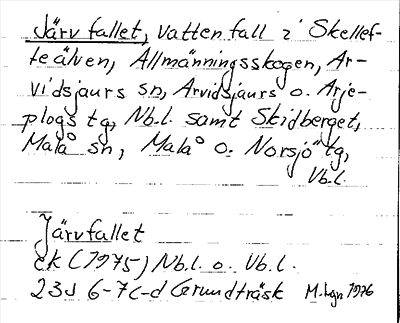 Järvfallet, vattenfall i Skellef-
teälven, Allmänningsskogen, Ar-
vidsjaurs sn, Arvidsjaurs o. Arje-
plogs tg, Nb.l. samt Skidberget,
Malå sn, Malå o. Norsjö tg,
Vb.l.
Järvfallet
ek (1975) Nb.l. o. Vb.l.
23J 6-7c-d Grundträsk 1976